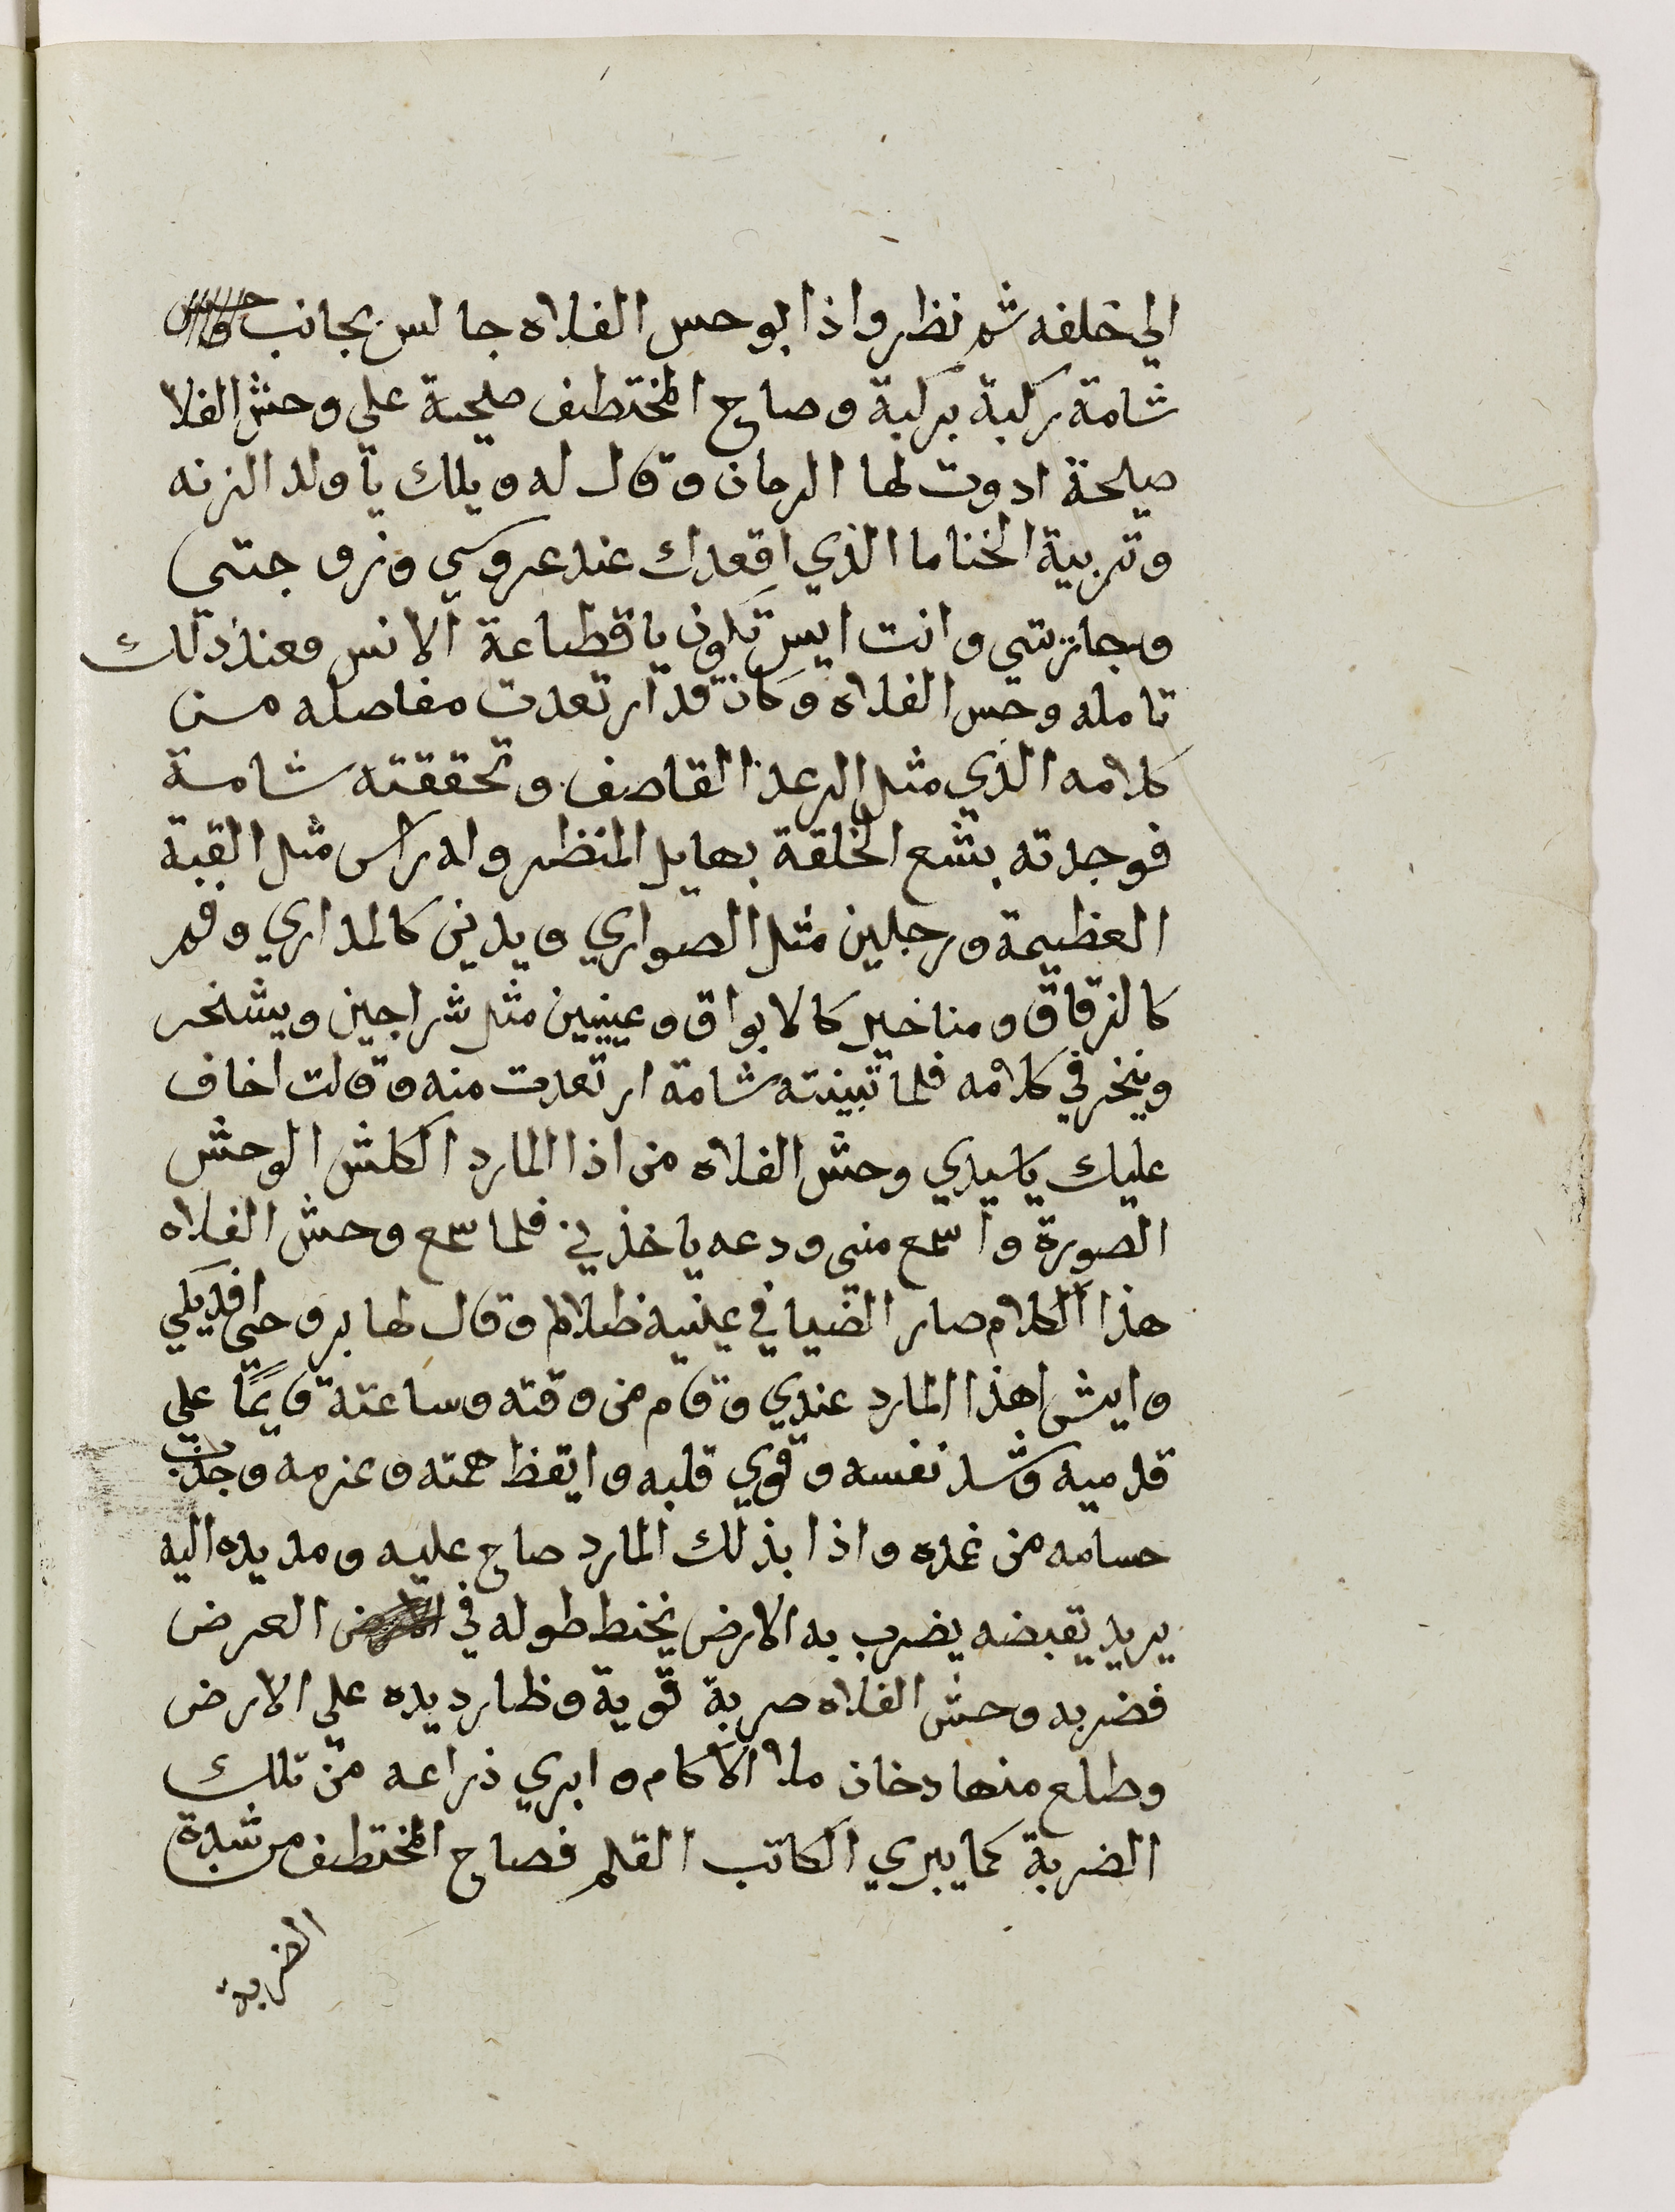 الي خلفه ثم نظر واذا بوحس الفلاه جالس بجانب
شامة ركبة بركبة وصاح المختطف صيحة علي وحش الفلا
صيحة ادوت لها الرحان وقال له ويلك يا ولد الزنه
وتربية الخنا ما الذي اقعدك عند عروسي وزوجتي
وجازيتي وانت ايس تكون يا قطاعة الانس فعند ذلك
تامله وحس الفلاه وكان قد ارتعدت مفاصله من
كلامه الذي مثل الرعد القاصف وتحققته شامة
فوجدته بشع الخلقة بهايل المنظر وله راس مثل القبة
العظيمة ورجلين مثل الصواري ويدين كالمداري وفم
كالزقاق ومناخير كالابواق وعينين مثل شراجين ويشخر
وينخر في كلامه فلما تبينته شامة ارتعدت منه وقالت اخاف
عليك يا سيدي وحش الفلاه من اذا المارد الكلش الوحش
الصورة واسمع مني ودعه ياخذني فلما سمع وحش الفلاه
هذا الكلام صار الضيا في عينيه ظلام وقال لها بروحي افديكي
وايش هذا المارد عندي وقام من وقته وساعته قايمًا علي
قدميه وشد نفسه وقوي قلبه وايقظ همته وعزمه وجذب
حسامه من غمده واذا بذلك المارد صاح عليه ومد يده اليه
يريد يقبضه يضرب به الارض يخبط طوله في العرض
فضربه وحش الفلاه صربة قوية وظارد يده علي الارض
وطلع منها دخان ملا الاكام وابري ذراعه من تلك
الضربة كما يبري الكاتب القلم فصاح المختطف من شدة
الضربة